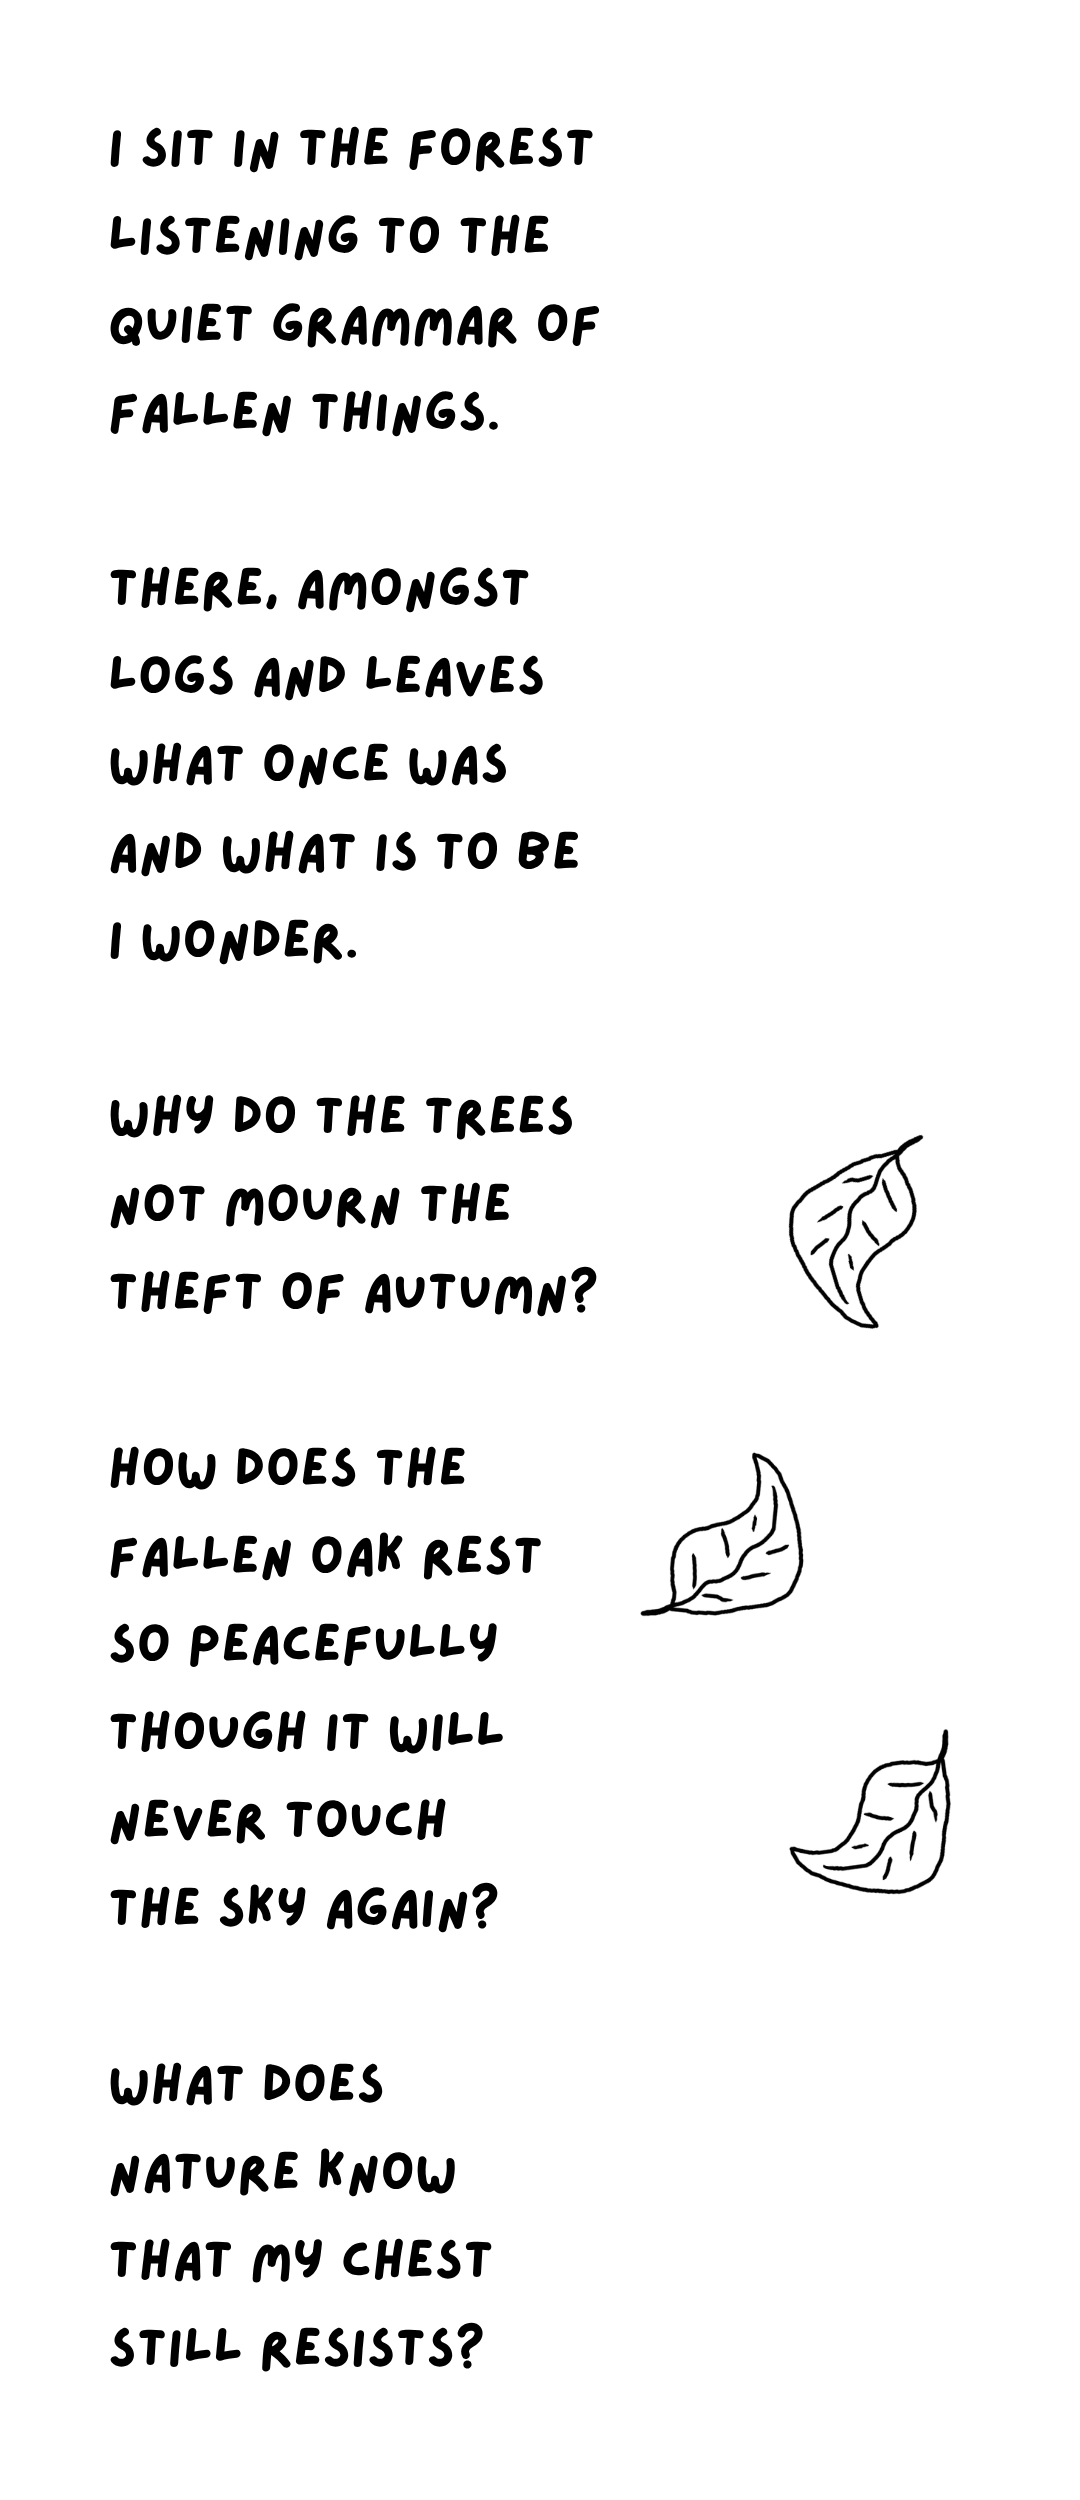 I SIT IN THE FOREST
LISTENING TO THE
QUIET GRAMMAR OF
FALLEN THINGS.
THERE, AMONGST
LOGS AND LEAVES
WHAT ONCE WAS
AND WHAT IS TO BE
I WONDER.
WHY DO THE TREES
NOT MOURN THE
THEFT OF AUTUMN?
HOW DOES THE
FALLEN OAK REST
SO PEACEFULLY
THOUGH IT WILL
NEVER TOUCH
THE SKY AGAIN?
WHAT DOES
NATURE KNOW
THAT MY CHEST
STILL RESISTS?